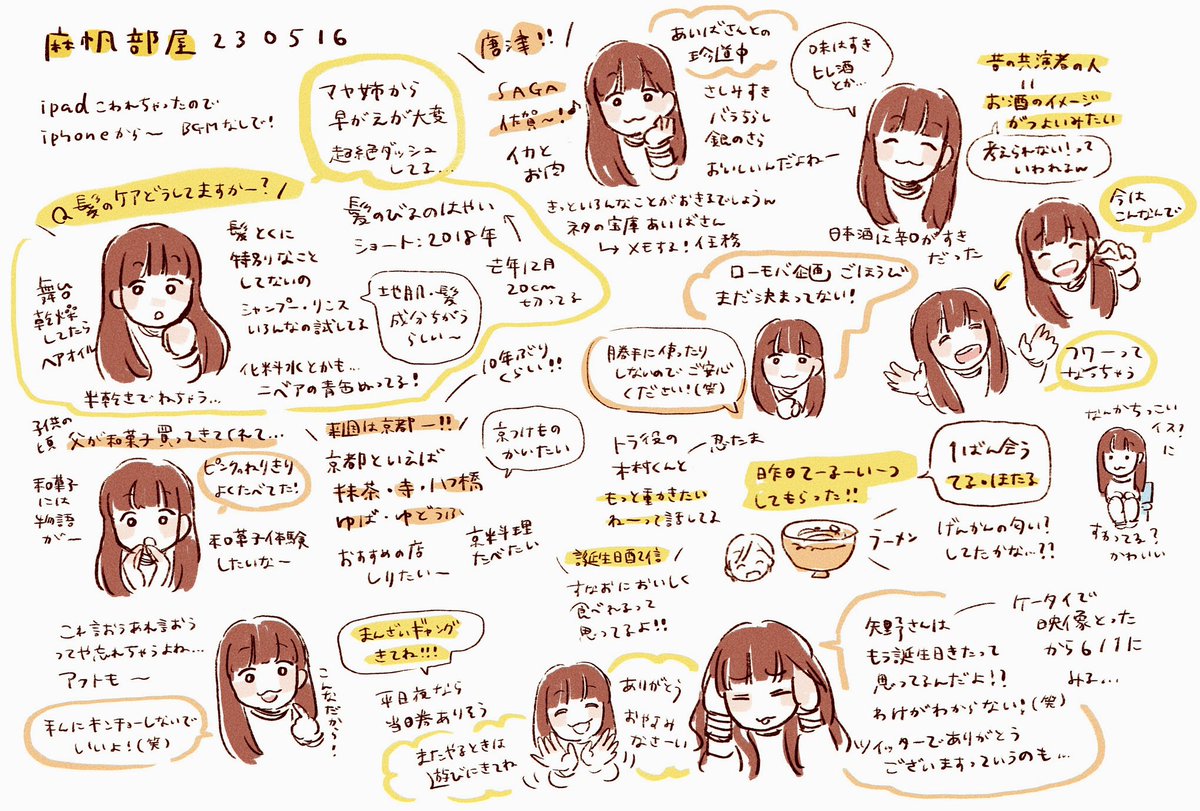 麻帆部屋 230516
ipadこわれちゃったので
iphoneから〜 BGMなしで!
マヤ姉から
早がえが大変
超絶ダッシュ
してる…
唐津!!
SAGA
佐賀〜!♪
イカと
お肉
あいばさんとの
珍道中
さしみすき
バラちらし
銀のさら
おいしいんだよねー
きっといろんなことがおきるでしょうん
ネタの宝庫あいばさん
→メモする!任務
味はすき
ヒレ酒
とか…
日本酒は辛口がすき
だった
昔の共演者の人
=
お酒のイメージ
がつよいみたい
考えられない!って
いわれるん
今は
こんなんで
フワーって
なっちゃう
Q髪のケアどうしてますかー?
舞台
乾燥
してたら
ヘアオイル
髪とくに
特別なこと
してないの
シャンプー・リンス
いろんなの試してる
化粧水とかも…
ニベアの青缶ぬってる!
半乾きでねちゃう…
髪のびるのはやい
ショート:2018年
去年12月
20cm
切ってる
地肌・髪
成分ちがう
らしい〜
ローモバ企画ごほうび
まだ決まってない!
勝手に使ったり
しないのでご安心
ください!(笑)
子供の
頃
父が和菓子買ってきてくれて…
和菓子
には
物語
が〜
ピンクのねりきり
よくたべてた!
和菓子体験
したいな〜
10年ぶり
くらい!!
来週は京都ー!!
京都といえば
抹茶・寺・八つ橋
ゆば・ゆどうふ
おすすめの店
しりたい〜
京つけもの
かいたい
京料理
たべたい
トラ役の
木村くんと
忍たま
もっと動かきたい
ねーって話してる
昨日てーるーいーつ
してもらった!!
1ばん合う
てる・ほたる
げんかんの匂い?
してたかな…??
ラーメン
なんかちっこい
イス!
に
すわってる?
かわいい
誕生日配信
すなおにおいしく
食べれるって
思ってるよ!!
これ言おうあれ言おう
ってや忘れちゃうよね…
アフトも〜
私にキンチョーしないで
いいよ!(笑)
こんなだから!
まんざいギャング
きてね!!!
平日夜なら
当日券ありそう
またやるときは
遊びにきてね
ありがとう
おやすみ
なさーい
矢野さんは
もう誕生日きたって
思ってるんだよ!?
わけがわからない!(笑)
ツイッターでありがとう
ございますっていうのも…
ケータイで
映像とった
から6/1に
みる…